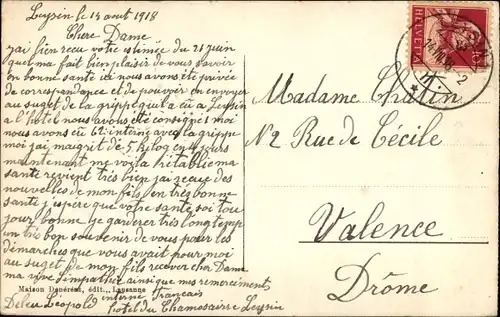 Leysin le 14 aout 1918
Chere Dame
j'ai bien recu votre estimée du 21 juin
quel ma fait bien plaisir de vous savoir
en bonne santé ici nous avons été privée
de correspondance et de pouvoir en envoyer
au suget de la grippe qu'il a eu a Leysin
a l'hotel nous avons été consignés moi
nous avons eu 62 interné avec la grippe
moi j'ai maugrit de 5 kilog en 4 jours
maintenant me voila rétablie ma
santé revient très bien j'ai recue des
nouvelles de mon fils en très bonne
santé j'espere que votre santé soi tou
jour bonne je garderer très longtemp
un très bon souvenir de vous pour les
démarches que vous avait pour moi
au suget de mon fils recever cher Dame
ma vive simpathie ainsi que mes remerciments
Deleu Léopold interné francais
hotel du Chamosairre Leysin
Maison Denéréaz, édit., Lausanne
HELVETIA
10
14.VIII.18.
Madame Chatin
N 2 Rue de Cécile
Valence
Drôme